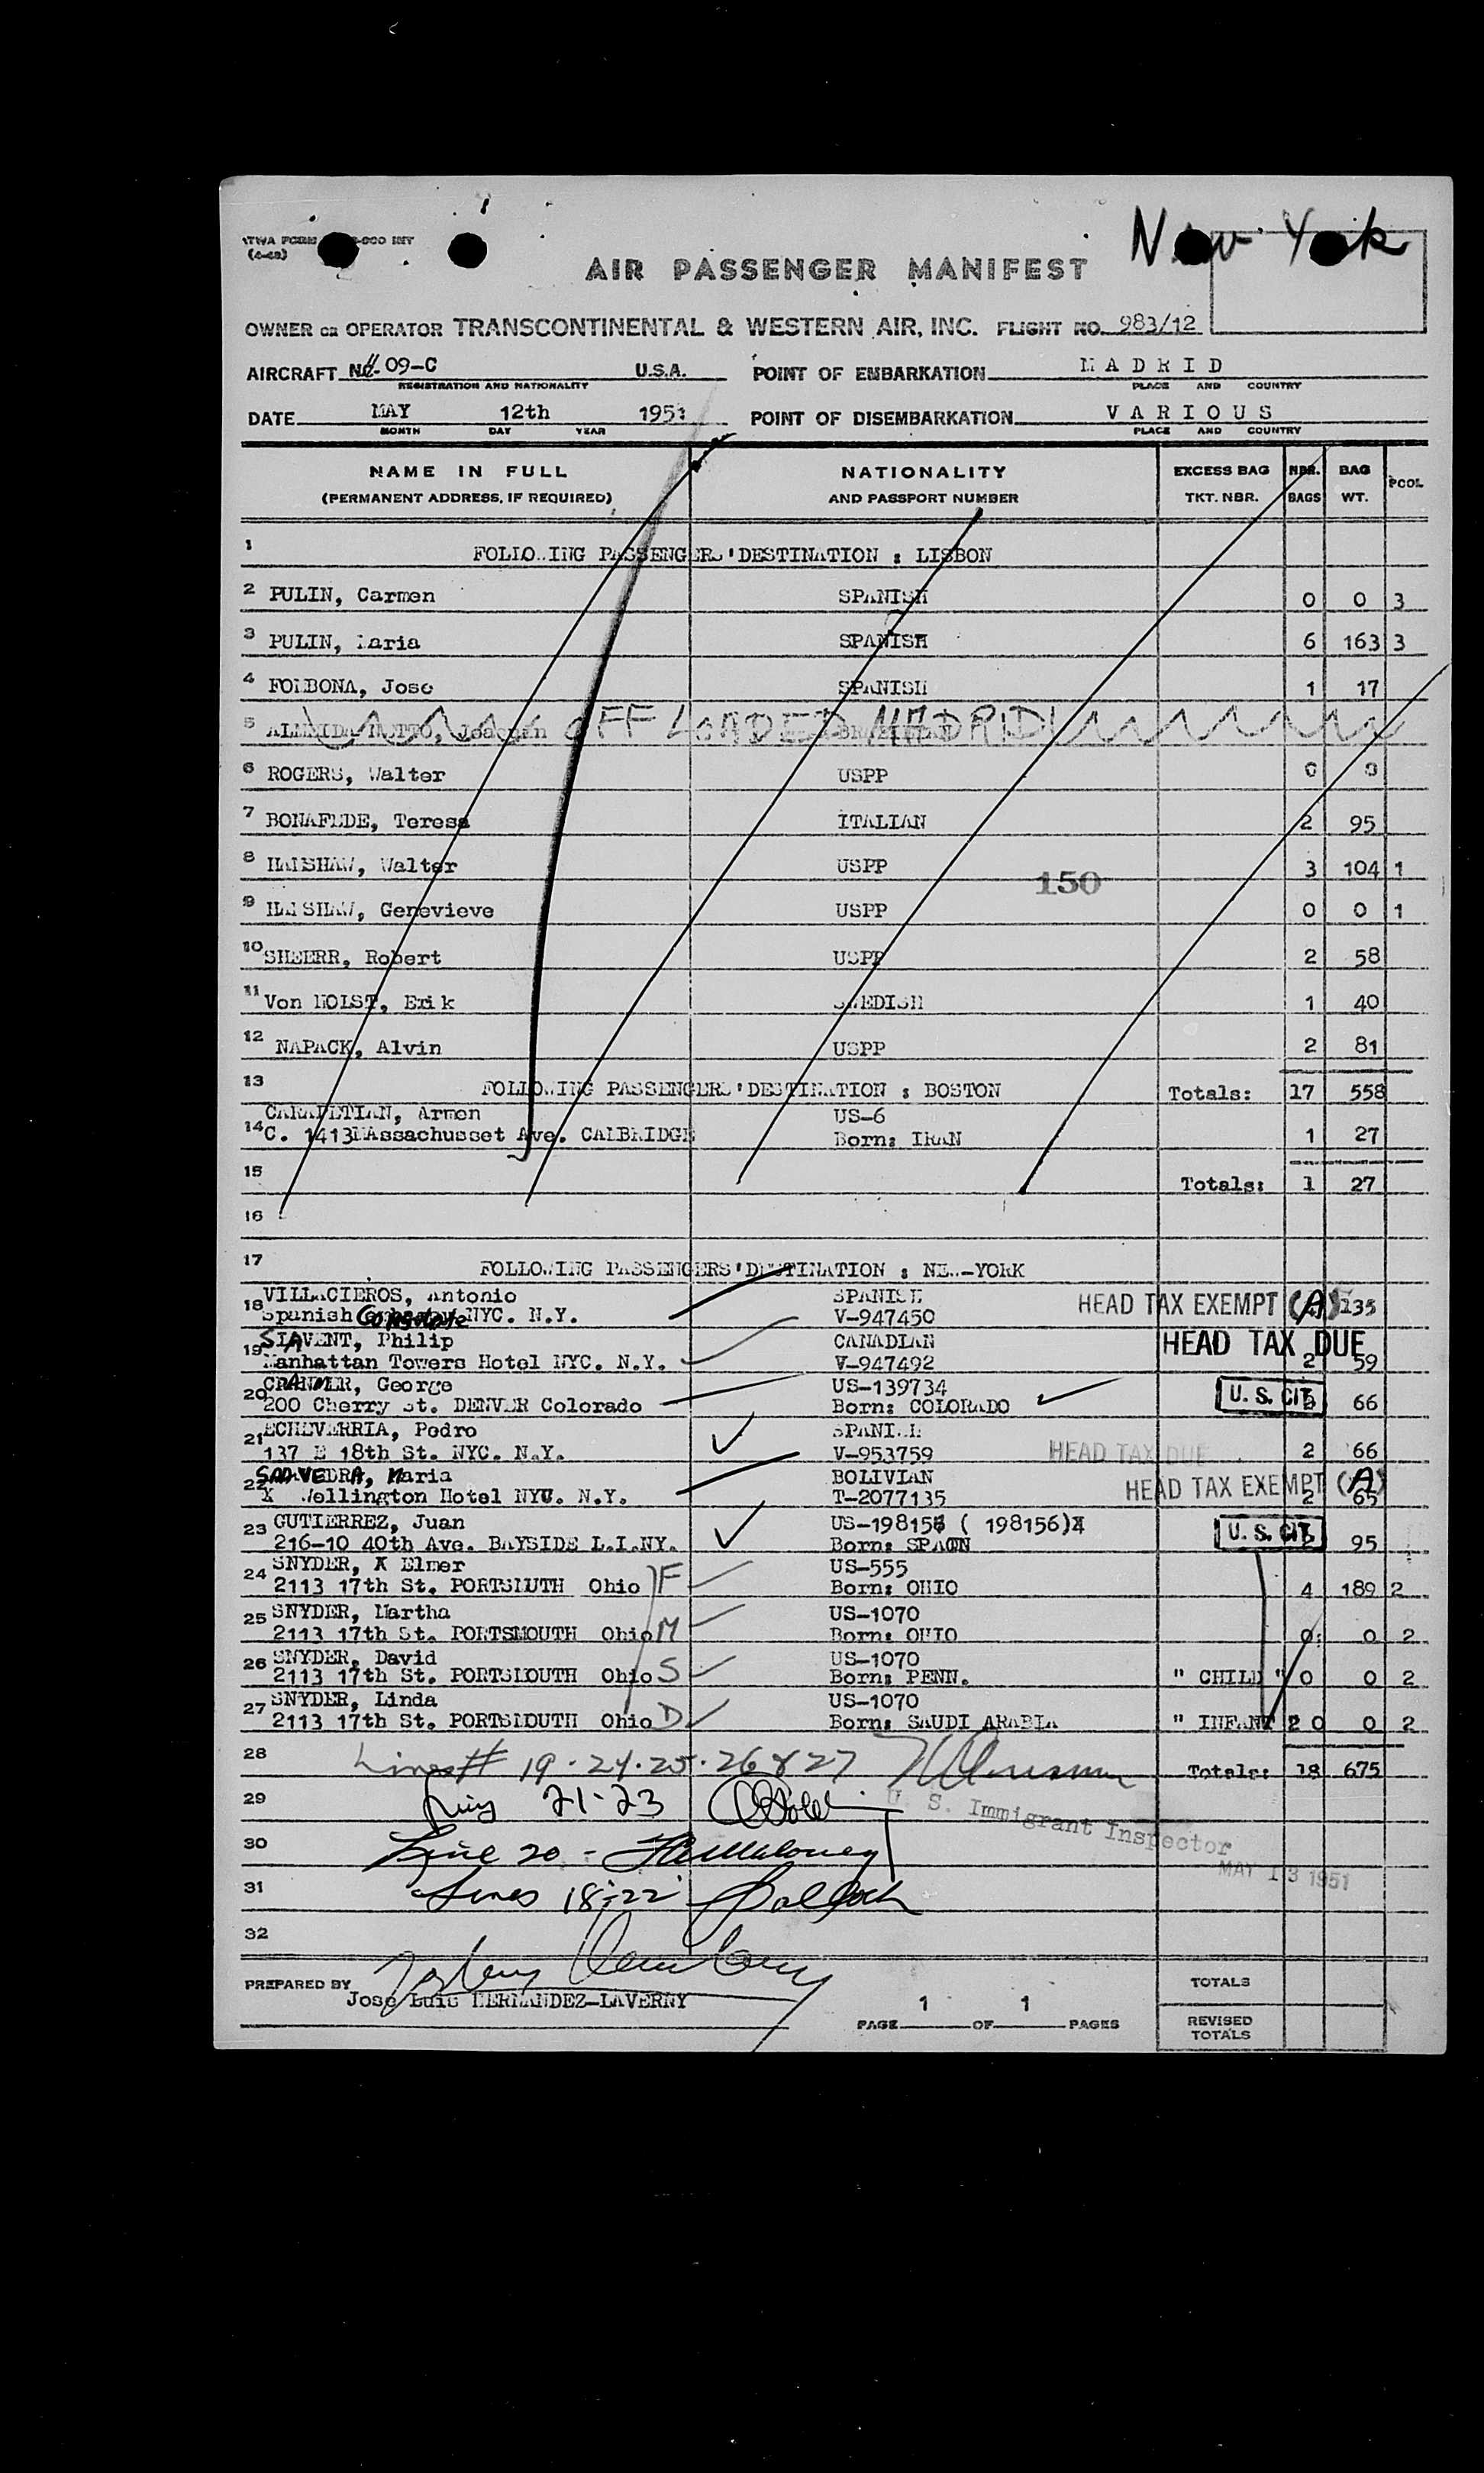 New York
TWA FORM -900 INT
(4-48)
AIR PASSENGER MANIFEST
OWNER OR OPERATOR TRANSCONTINENTAL & WESTERN AIR, INC. FLIGHT NO. 983/12
AIRCRAFT 09-C U.S.A. POINT OF EMBARKATION MADRID
REGISTRATION AND NATIONALITY PLACE AND COUNTRY
DATE MAY 12th 1951 POINT OF DISEMBARKATION VARIOUS
MONTH DAY YEAR PLACE AND COUNTRY
NAME IN FULL NATIONALITY EXCESS BAG NBR. BAG PCOL
(PERMANENT ADDRESS, IF REQUIRED) AND PASSPORT NUMBER TKT. NBR. BAGS WT.
1 FOLLOWING PASSENGERS'DESTINATION : LISBON
2 PULIN, Carmen SPANISH 0 0 3
3 PULIN, Maria SPANISH 6 163 3
4 FOLBONA, Jose SPANISH 1 17
5 Joaquin OFF LOADED MADRID
6 ROGERS, Walter USPP 0 0
7 BONAFEDE, Teresa ITALIAN 2 95
8 HENSHAW, Walter USPP 3 104 1
150
9 HENSHAW, Genevieve USPP 0 0 1
10 SHEERR, Robert USPP 2 58
11 Von HOLST, Erik SWEDISH 1 40
12 NAPACK, Alvin USPP 2 81
13 FOLLOWING PASSENGERS'DESTINATION : BOSTON Totals: 17 558
CARAPETIAN, Armen US-6
14 C. 1413 MAssachusset Ave. CAMBRIDGE Born: IRAN 1 27
15 Totals: 1 27
16
17 FOLLOWING PASSENGERS'DESTINATION : NEW-YORK
VILLACIEROS, Antonio SPANISH HEAD TAX EXEMPT (A) 135
18 Spanish Consulate NYC. N.Y. V-947450
SLAVENT, Philip CANADIAN HEAD TAX DUE
19 Manhattan Towers Hotel NYC. N.Y. V-947492 2 59
CRANMER, George US-139734 U. S. CIT.
20 200 Cherry St. DENVER Colorado Born: COLORADO 66
ECHEVERRIA, Pedro SPANISH
21 137 E 18th St. NYC. N.Y. V-953759 HEAD TAX DUE 2 66
SAAVEDRA, Maria BOLIVIAN HEAD TAX EXEMPT (A)
22 X Wellington Hotel NYC. N.Y. T-2077135 2 65
23 GUTIERREZ, Juan US-198156 ( 198156) U. S. CIT.
216-10 40th Ave. BAYSIDE L.I.NY. Born: SPAIN 95
24 SNYDER, X Elmer US-555
2113 17th St. PORTSMUTH Ohio F Born: OHIO 4 189 2
25 SNYDER, Martha US-1070
2113 17th St. PORTSMOUTH Ohio M Born: OHIO 0 0 2
26 SNYDER, David US-1070
2113 17th St. PORTSMOUTH Ohio S Born: PENN. " CHILD " 0 0 2
27 SNYDER, Linda US-1070
2113 17th St. PORTSMOUTH Ohio D Born: SAUDI ARABIA " INFANT " 0 0 2
28 Lines # 19-24-25-26 & 27 Totals: 18 675
29 21-23
U. S. Immigrant Inspector
30 Line 20 -
MAY 13 1951
31 Lines 18-22
32
PREPARED BY TOTALS
Jose Luis HERNANDEZ-LAVERNY
PAGE 1 OF 1 PAGES REVISED
TOTALS